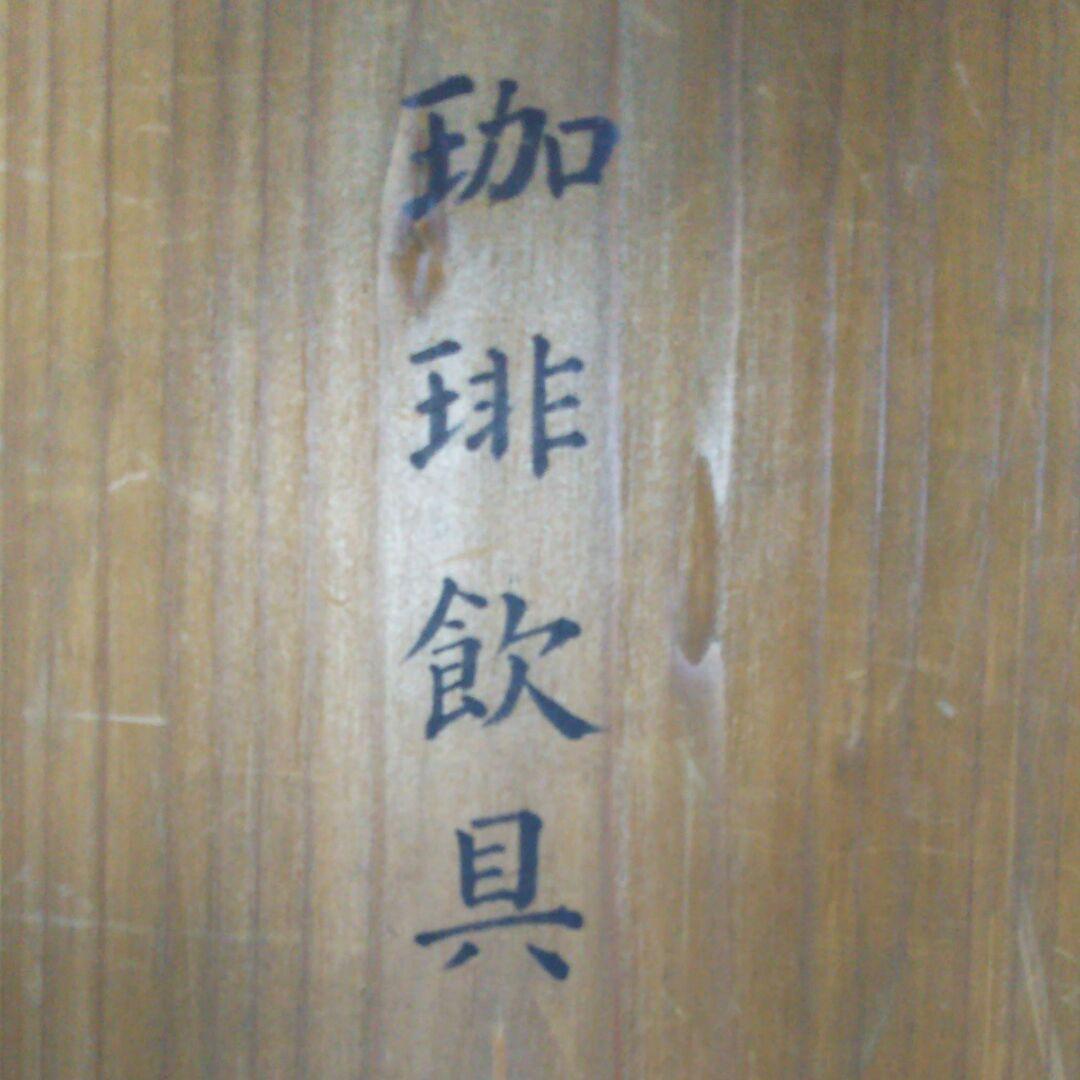 珈琲飲具